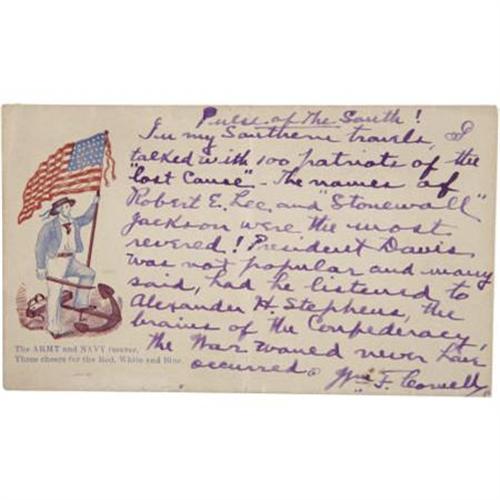 Pulse of The South!
In my Southern travels, I
"talked with 100 patriots of the
"Lost Cause" - The names of
Robert E. Lee, and Stonewall"
Jackson were the most
revered! President Davis
was not popular and many
said, had he listened to
Alexander H. Stephens, the
brains of the Confederacy,
the War would never have
occurred. Wm F.
The ARMY and NAVY forever,
Three cheers for the Red, White and Blue.